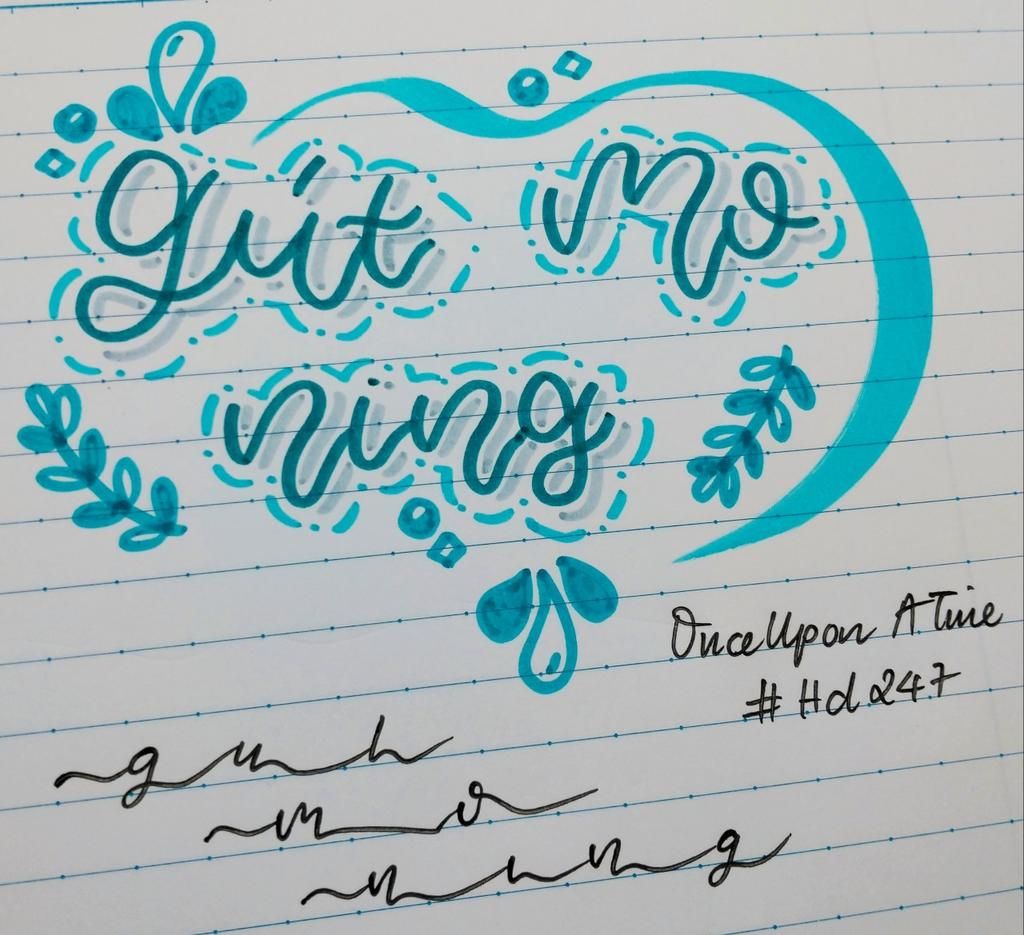 gút mo
ning
Once Upon A Time
# Hd 247
mo
ning